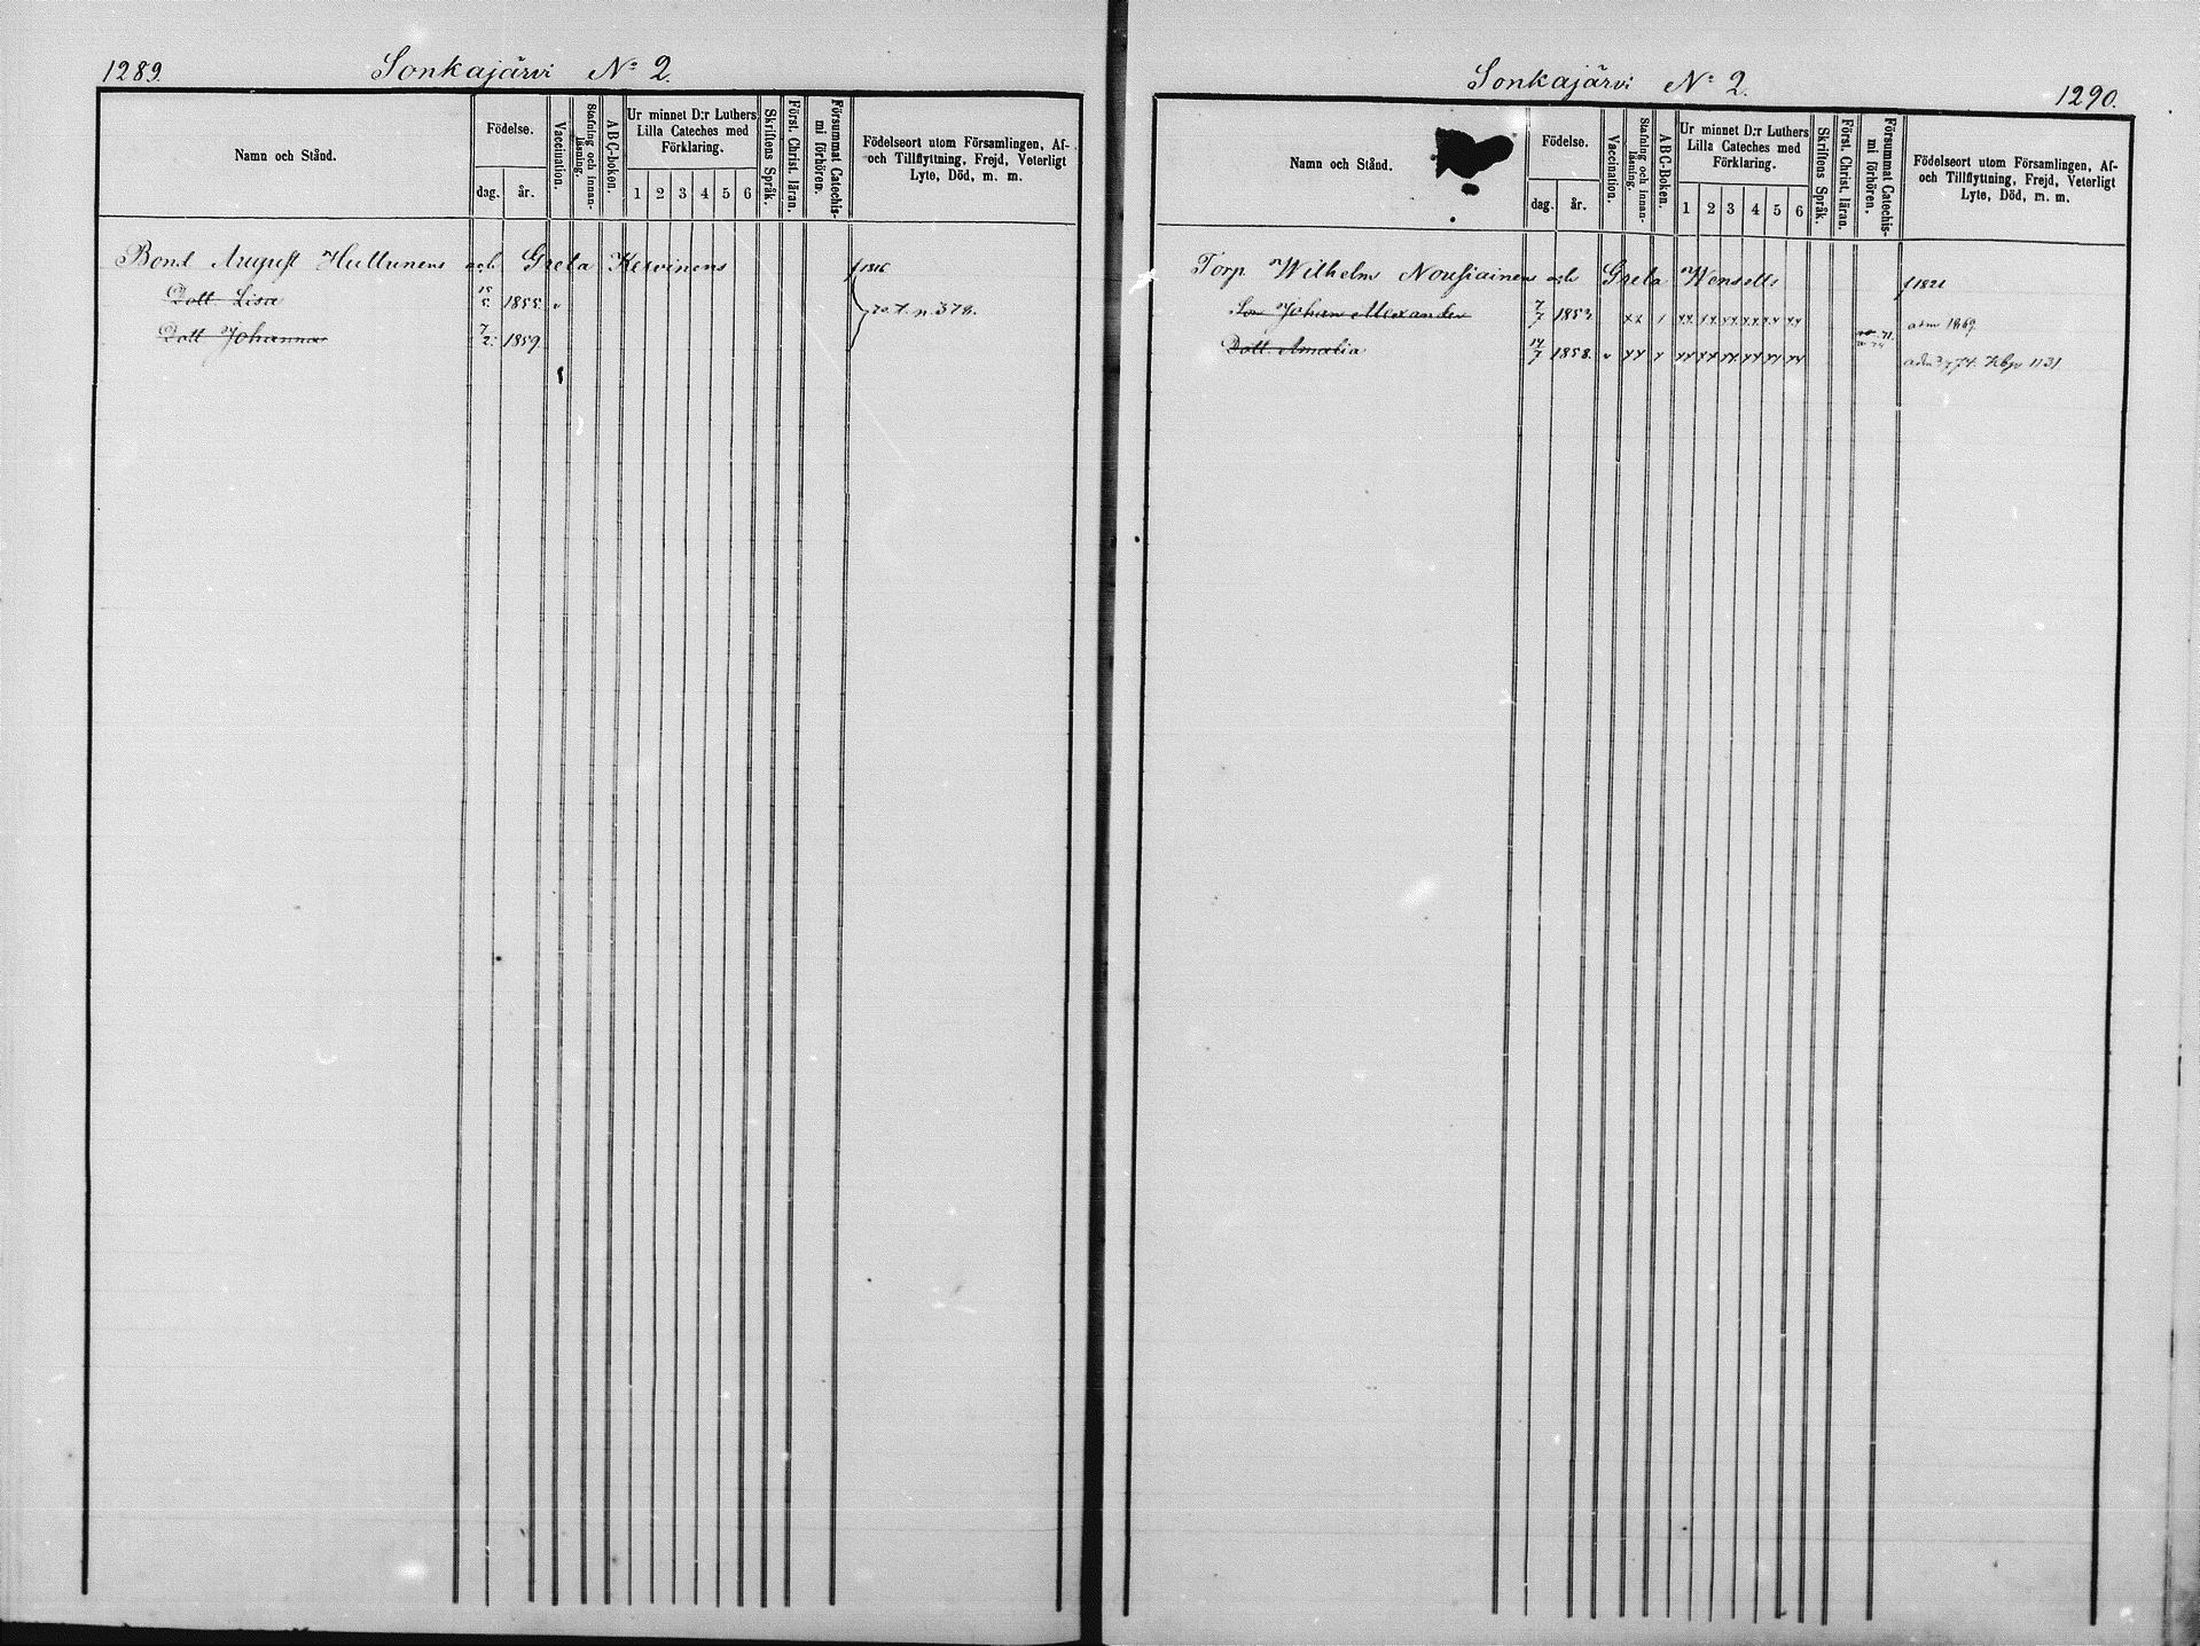 1289.
Sonkajärvi No 2.
Namn och Stånd.
Födelse.
dag. år.
Vaccination.
Stafning och innan-
läsning.
ABC-boken.
Ur minnet D:r Luthers
Lilla Cateches med
Förklaring.
1 2 3 4 5 6
Skriftens Språk.
Först. Christ. läran.
Försummat Catechis-
mi förhören.
Födelseort utom Församlingen, Af-
och Tillflyttning, Frejd, Veterligt
Lyte, Död, m. m.
Bond August Huttunens och Greta Kervinens f 1816
Dott Lisa 1855.
n. 378.
Dott Johanna 7/2 1859.
Sonkajärvi No 2.
1290.
Namn och Stånd.
Födelse.
dag. år.
Vaccination.
Stafning och innan-
läsning.
ABC-Boken.
Ur minnet D:r Luthers
Lilla Cateches med
Förklaring.
1 2 3 4 5 6
Skriftens Språk.
Först. Christ. läran.
Försummat Catechis-
mi förhören.
Födelseort utom Församlingen, Af-
och Tillflyttning, Frejd, Veterligt
Lyte, Död, m. m.
Torp Wilhelm Nousiainens och Greta f 1821
Son Johan Alexander 7/7 1853 adm 1869
Dott Amalia 14/7 1858. 1131